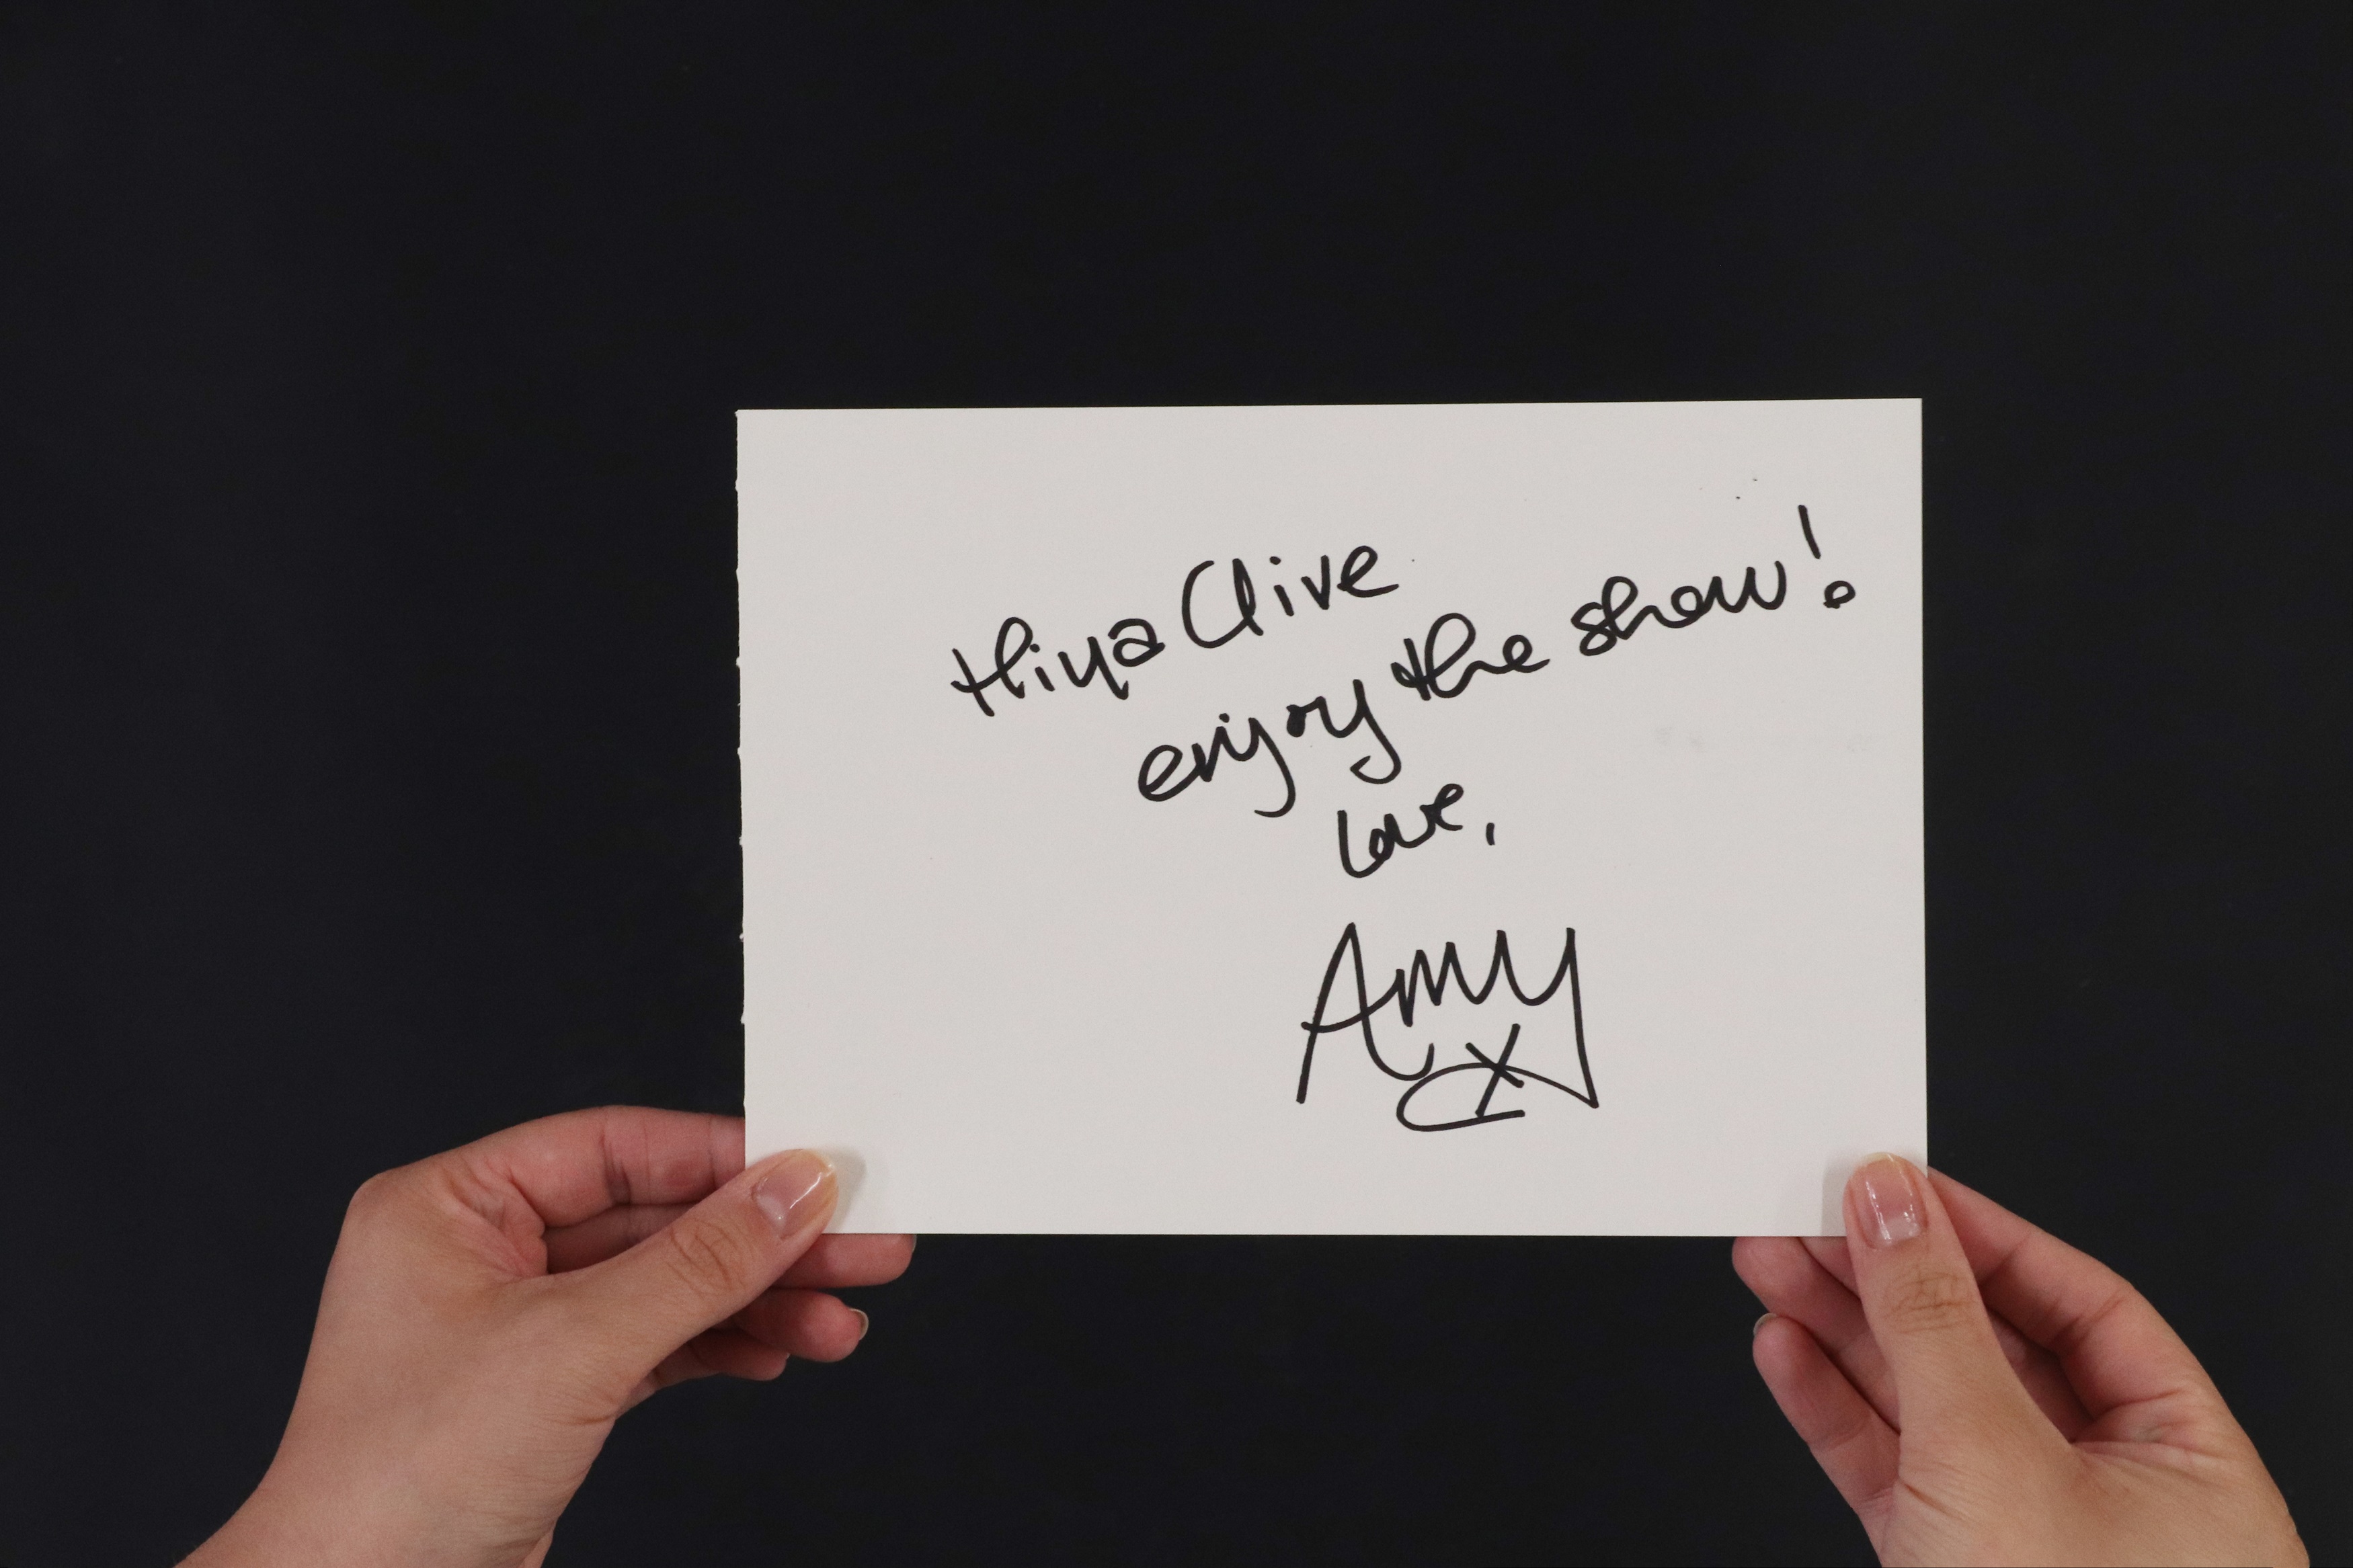 Hiya Clive
enjoy the show!
Love,
Amy
X